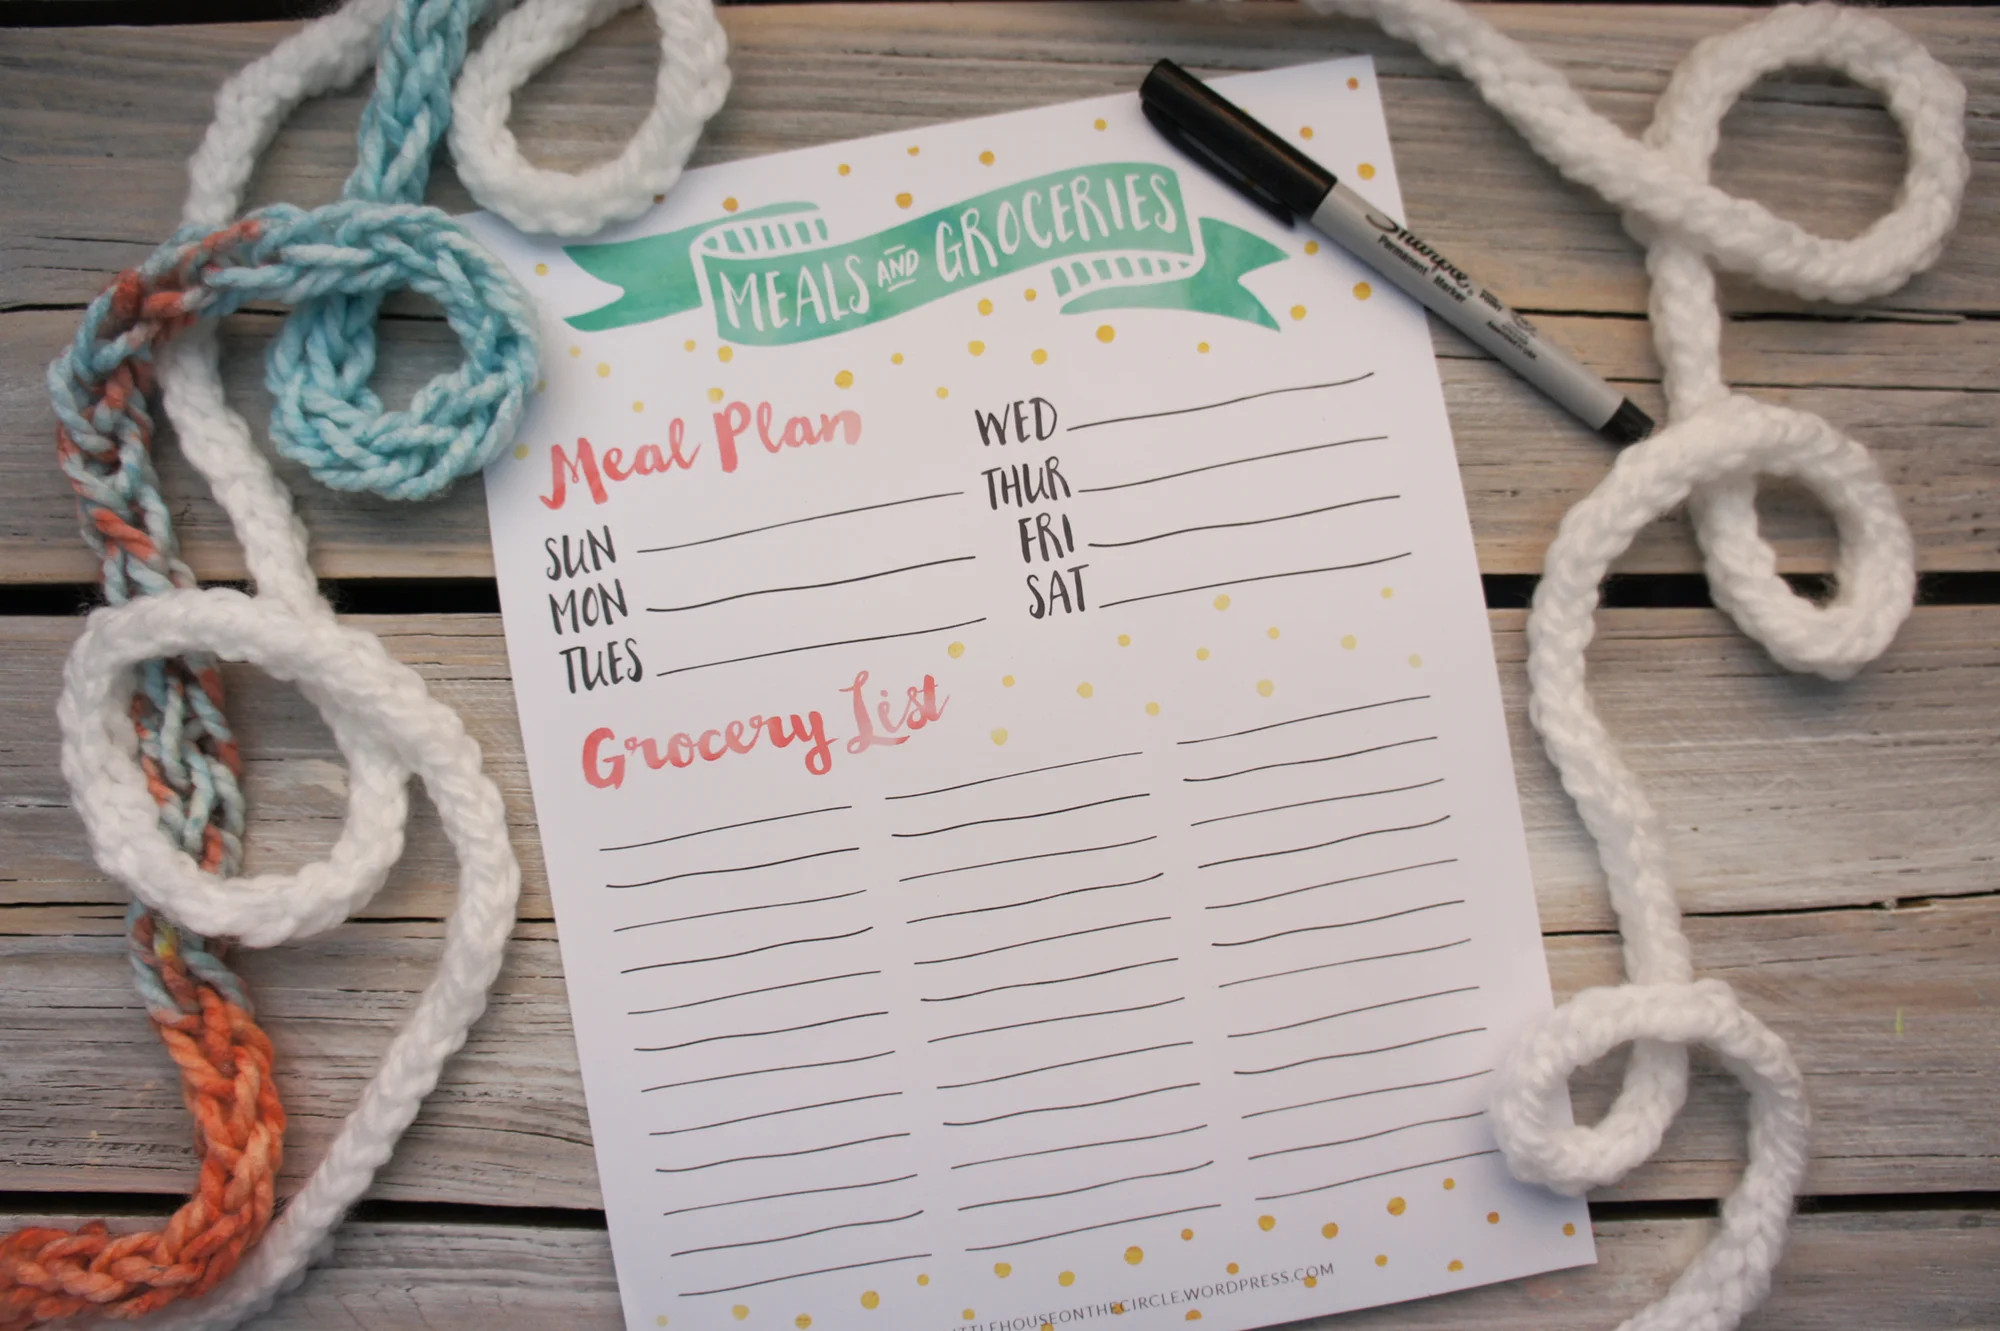 MEALS AND GROCERIES
Meal Plan
SUN
MON
TUES
WED
THUR
FRI
SAT
Grocery List
Sharpie
Permanent Marker